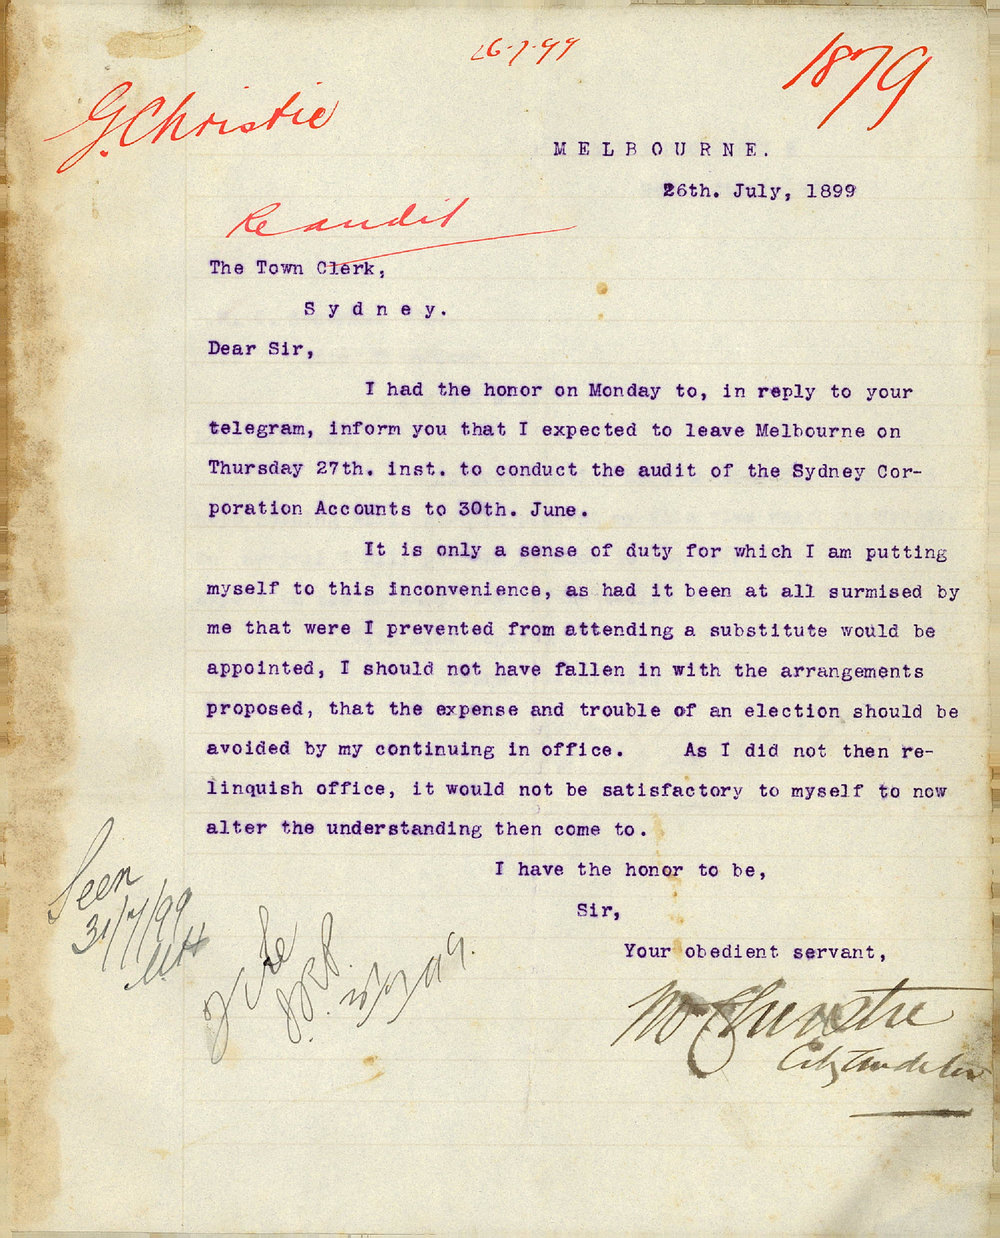 26-7-99
1879
G. Christie
MELBOURNE.
26th. July, 1899
Re audit
The Town Clerk,
Sydney.
Dear Sir,
I had the honor on Monday to, in reply to your
telegram, inform you that I expected to leave Melbourne on
Thursday 27th. inst. to conduct the audit of the Sydney Cor-
poration Accounts to 30th. June.
It is only a sense of duty for which I am putting
myself to this inconvenience, as had it been at all surmised by
me that were I prevented from attending a substitute would be
appointed, I should not have fallen in with the arrangements
proposed, that the expense and trouble of an election should be
avoided by my continuing in office. As I did not then re-
linquish office, it would not be satisfactory to myself to now
alter the understanding then come to.
I have the honor to be,
Sir,
Your obedient servant,
Christie
City Auditor
Seen
31/7/99